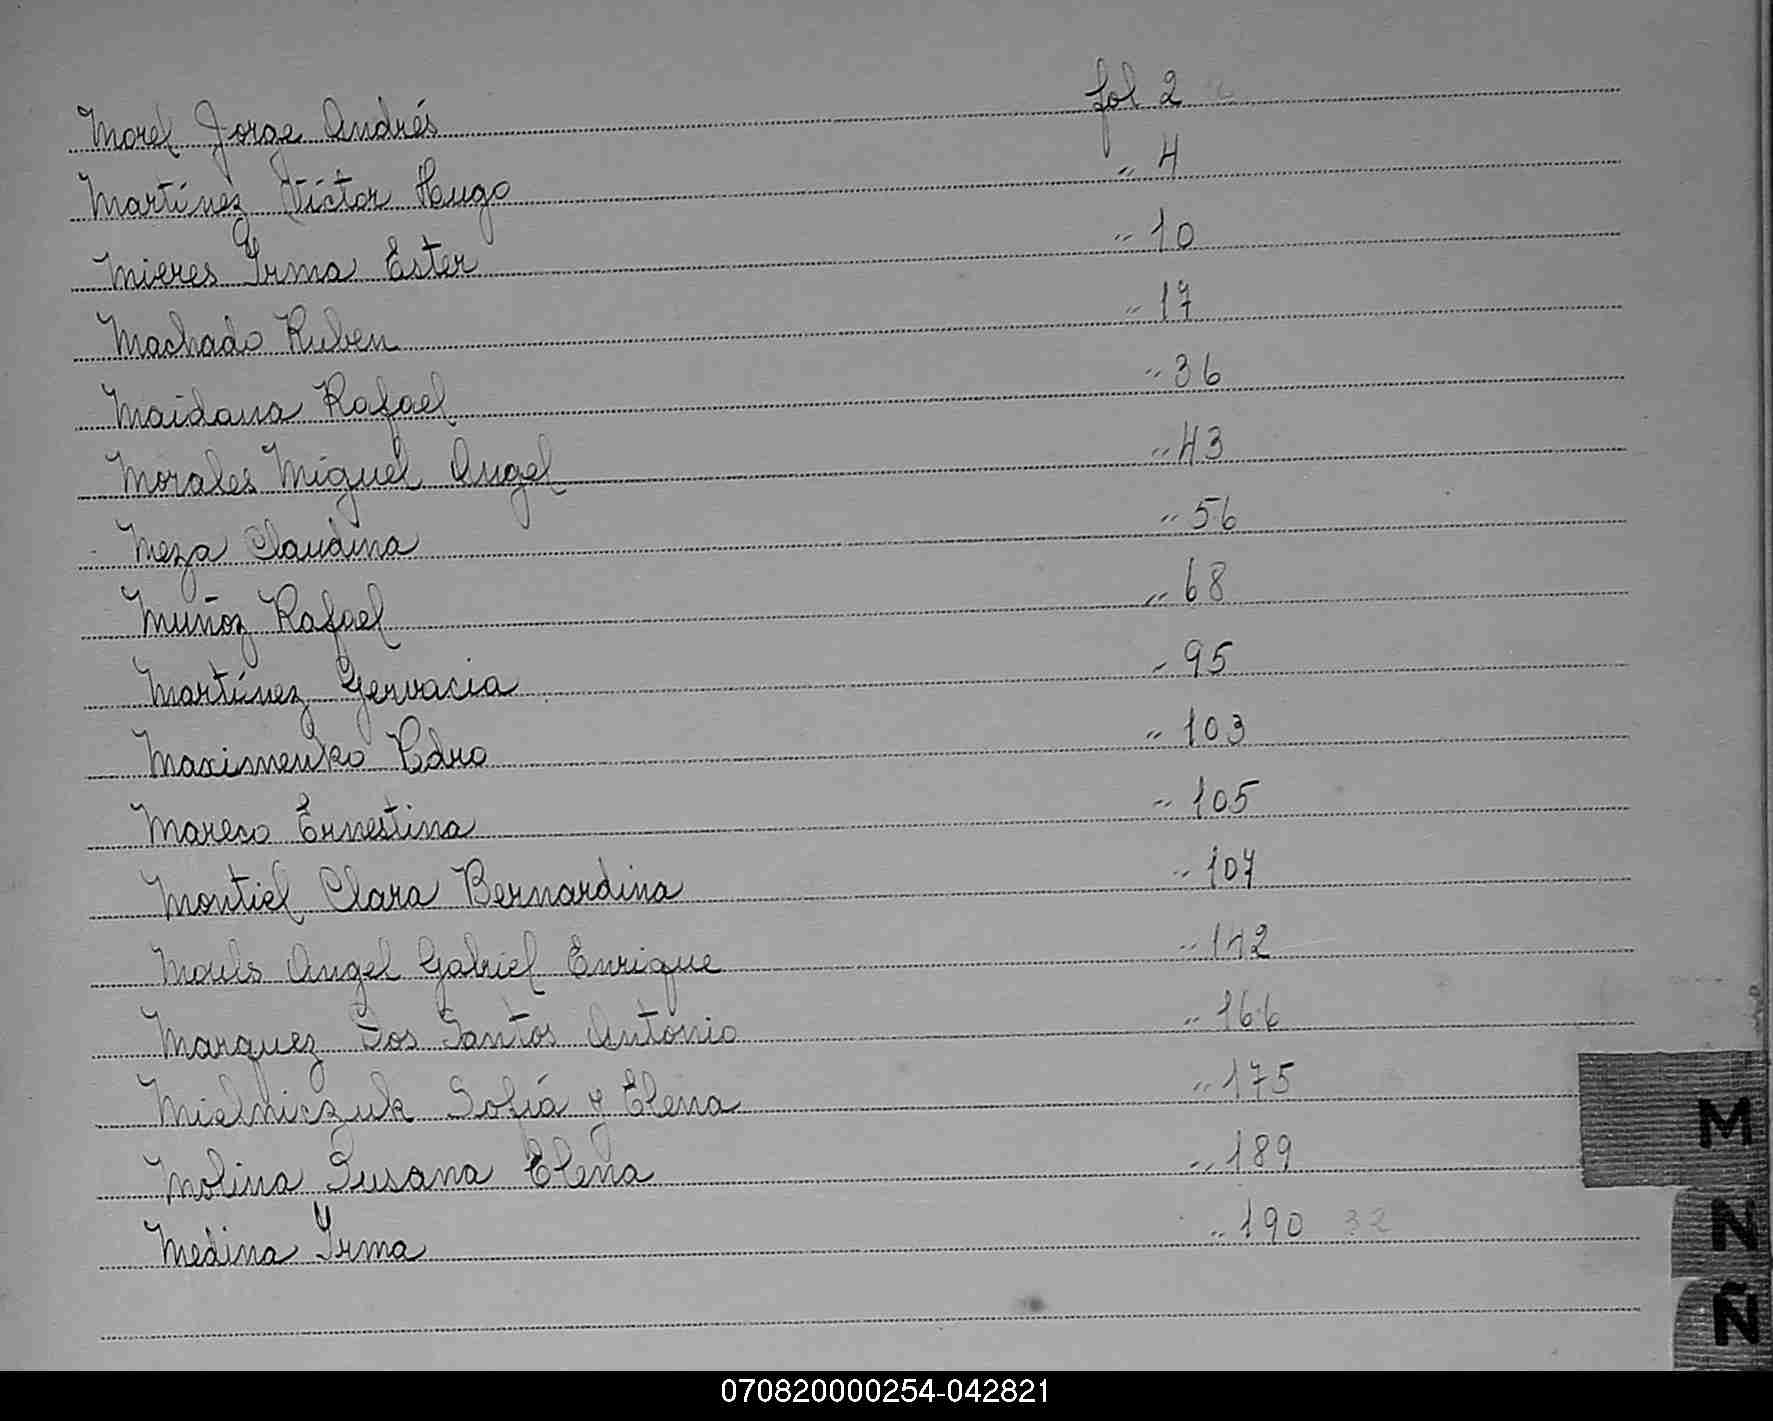 Morel Jorge Andrés fol 2
Martínez Víctor Hugo " 4
Mieres Irma Ester " 10
Machado Ruben " 17
Maidana Rafael " 36
Morales Miguel Angel " 43
Meza Claudina " 56
Muñoz Rafael " 68
Martínez Gervacia " 95
Maximenko Pedro " 103
Mareco Ernestina " 105
Montiel Clara Bernardina " 107
Angel Gabriel Enrique " 142
Marquez Dos Santos Antonio " 166
Mielniczuk Sofiá y Elena " 175
Molina Susana Elena " 189
Medina Irma " 190 32
M
N
Ñ
070820000254-042821